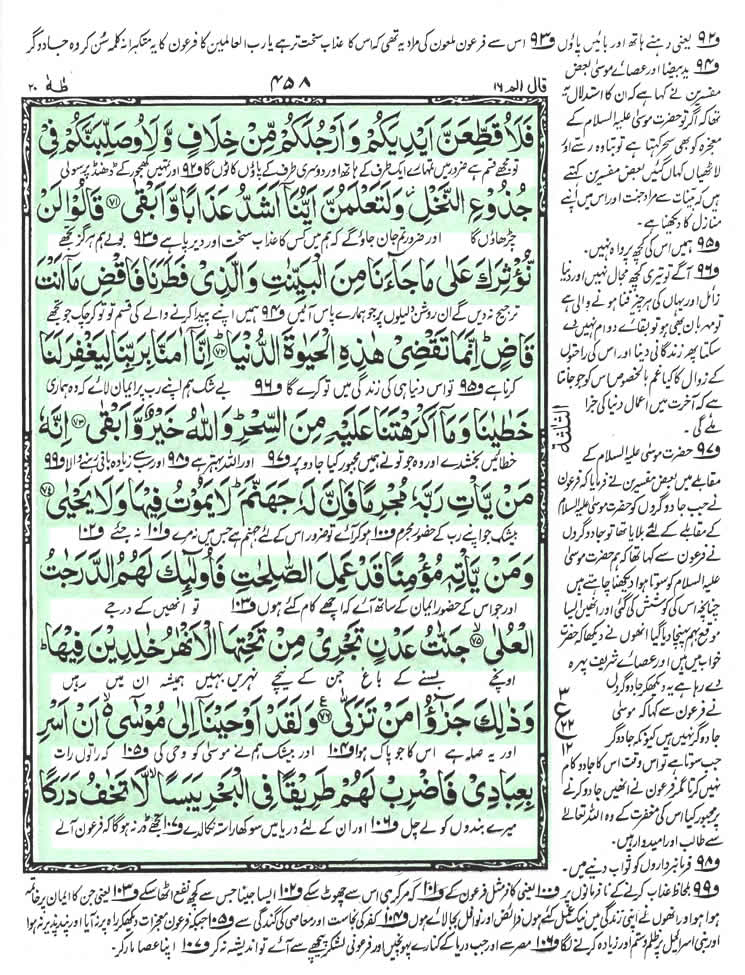 و۹۲ یعنی دہنے ہاتھ اور بائیں پاؤں و۹۳ اس سے فرعون ملعون کی مراد یہ تھی کہ اس کا عذاب سخت تر ہے یا رب العالمین کا فرعون کا یہ متکبرانہ کلمہ سُن کر وہ جادوگر
قال الم ۱۶
۴۵۸
طٰهٰ ۲۰
فَلَاُ قَطِّعَنَّ اَيْدِيَكُمْ وَاَرْجُلَكُمْ مِّنْ خِلَافٍ وَّلَاُوصَلِّبَنَّكُمْ فِيْ
تو مجھے قسم ہے ضرور میں تمہارے ایک طرف کے ہاتھ اور دوسری طرف کے پاؤں کاٹوں گا و۹۲ اور تمہیں کھجور کے ڈھنڈ پر سولی
جُذُوْعِ النَّخْلِ وَلَتَعْلَمُنَّ اَيُّنَآ اَشَدُّ عَذَابًا وَّاَبْقٰى ﴿۷۱﴾ قَالُوْا لَنْ
چڑھاؤں گا اور ضرور تم جان جاؤ گے کہ ہم میں کس کا عذاب سخت اور دیرپا ہے و۹۳ بولے ہم ہرگز تجھے
نُّؤْثِرَكَ عَلٰى مَا جَآءَنَا مِنَ الْبَيِّنٰتِ وَالَّذِيْ فَطَرَنَا فَاقْضِ مَآ اَنْتَ
ترجیح نہ دیں گے ان روشن دلیلوں پر جو ہمارے پاس آئیں و۹۴ ہمیں اپنے پیدا کرنے والے کی قسم تو تو کر چک جو تجھے
قَاضٍ ؕ اِنَّمَا تَقْضِيْ هٰذِهِ الْحَيٰوةَ الدُّنْيَا ﴿۷۲﴾ اِنَّآ اٰمَنَّا بِرَبِّنَا لِيَغْفِرَ لَنَا
کرنا ہے و۹۵ تو اس دنیا ہی کی زندگی میں تو کرے گا و۹۶ بے شک ہم اپنے رب پر ایمان لائے کہ وہ ہماری
خَطٰيٰنَا وَمَآ اَكْرَهْتَنَا عَلَيْهِ مِنَ السِّحْرِ ؕ وَاللّٰهُ خَيْرٌ وَّاَبْقٰى ﴿۷۳﴾ اِنَّهٗ
خطائیں بخشدے اور وہ جو تونے ہمیں مجبور کیا جادو پر و۹۷ اور اللہ بہتر ہے و۹۸ اور سب سے زیادہ باقی رہنے والا و۹۹
مَنْ يَّاْتِ رَبَّهٗ مُجْرِمًا فَاِنَّ لَهٗ جَهَنَّمَ ؕ لَا يَمُوْتُ فِيْهَا وَلَا يَحْيٰى ﴿۷۴﴾
بیشک جو اپنے رب کے حضور مجرم و۱۰۰ ہو کر آئے تو ضرور اس کے لئے جہنم ہے جس میں نہ مرے و۱۰۱ نہ جئے و۱۰۲
وَمَنْ يَّاْتِهٖ مُؤْمِنًا قَدْ عَمِلَ الصّٰلِحٰتِ فَاُولٰٓئِكَ لَهُمُ الدَّرَجٰتُ
اور جو اس کے حضور ایمان کے ساتھ آئے کہ اچھے کام کئے ہوں و۱۰۳ تو انھیں کے درجے
الْعُلٰى ﴿۷۵﴾ جَنّٰتُ عَدْنٍ تَجْرِيْ مِنْ تَحْتِهَا الْاَنْهٰرُ خٰلِدِيْنَ فِيْهَا ؕ
اونچے بسنے کے باغ جن کے نیچے نہریں بہیں ہمیشہ ان میں رہیں
وَذٰلِكَ جَزٰٓؤُا مَنْ تَزَكّٰى ﴿۷۶﴾ وَلَقَدْ اَوْحَيْنَآ اِلٰى مُوْسٰٓى اَنْ اَسْرِ
اور یہ صلہ ہے اس کا جو پاک ہوا و۱۰۴ اور بیشک ہم نے موسیٰ کو وحی کی و۱۰۵ کہ راتوں رات
بِعِبَادِيْ فَاضْرِبْ لَهُمْ طَرِيْقًا فِي الْبَحْرِ يَبَسًا ۙ لَّا تَخٰفُ دَرَكًا
میرے بندوں کو لے چل و۱۰۶ اور ان کے لئے دریا میں سوکھا راستہ نکال دے و۱۰۷ تجھے ڈر نہ ہوگا کہ فرعون آلے
و۹۴ ید بیضا اور عصائے موسیٰ بعض
مفسرین نے کہا ہے کہ ان کا استدلال یہ
تھا کہ اگر تو حضرت موسیٰ علیہ السلام کے
معجزہ کو بھی سحر کہتا ہے تو بتا وہ رسے اور
لاٹھیاں کہاں گئیں بعض مفسرین کہتے
ہیں کہ بینات سے مراد جنت اور اس میں اپنے
منازل کا دیکھنا ہے۔
و۹۵ ہمیں اس کی کچھ پرواہ نہیں۔
و۹۶ آگے تو تیری کچھ مجال نہیں اور دنیا
زائل اور یہاں کی ہر چیز فنا ہونے والی ہے
تو مہربان بھی ہو تو بقائے دوام نہیں دے
سکتا پھر زندگانی دنیا اور اس کی راحتوں
کے زوال کا کیا غم بالخصوص اس کو جو جانتا
ہے کہ آخرت میں اعمال دنیا کی جزا
ملے گی۔
الثلثة
و۹۷ حضرت موسیٰ علیہ السلام کے
مقابلے میں بعض مفسرین نے فرمایا کہ فرعون
نے جب جادوگروں کو حضرت موسیٰ علیہ السلام
کے مقابلے کے لئے بلایا تھا تو جادوگروں
نے فرعون سے کہا تھا کہ ہم حضرت موسیٰ
علیہ السلام کو سوتا ہوا دیکھنا چاہتے ہیں
چنانچہ اس کی کوشش کی گئی اور انھیں ایسا
موقع بہم پہنچا دیا گیا انھوں نے دیکھا کہ حضرت
خواب میں ہیں اور عصائے شریف پہرہ
دے رہا ہے یہ دیکھ کر جادوگروں
نے فرعون سے کہا کہ موسیٰ
جادوگر نہیں ہیں کیونکہ جادوگر
جب سوتا ہے تو اس وقت اس کا جادو کام
نہیں کرتا مگر فرعون نے انھیں جادو کرنے
پر مجبور کیا اس کی مغفرت کے وہ اللہ تعالےٰ
سے طالب اور امیدوار ہیں۔
۳
ع
۲۲
۱۲
و۹۸ فرمانبرداروں کو ثواب دینے میں۔
و۹۹ بلحاظ عذاب کرنے کے نافرمانوں پر و۱۰۰ یعنی کافر مثل فرعون کے و۱۰۱ کہ مر کر ہی اس سے چھوٹ سکے و۱۰۲ ایسا جینا جس سے کچھ نفع اٹھا سکے و۱۰۳ یعنی جن کا ایمان پر خاتمہ
ہوا ہو اور انھوں نے اپنی زندگی میں نیک عمل کئے ہوں فرائض اور نوافل بجا لائے ہوں و۱۰۴ کفر کی نجاست اور معاصی کی گندگی سے و۱۰۵ جبکہ فرعون معجزات دیکھ کر راہ پر نہ آیا اور پند پذیر نہ ہوا
اور بنی اسرائیل پر ظلم و ستم اور زیادہ کرنے لگا و۱۰۶ مصر سے اور جب دریا کے کنارے پہونچیں اور فرعونی لشکر پیچھے سے آئے تو اندیشہ نہ کر و۱۰۷ اپنا عصا مار کر۔